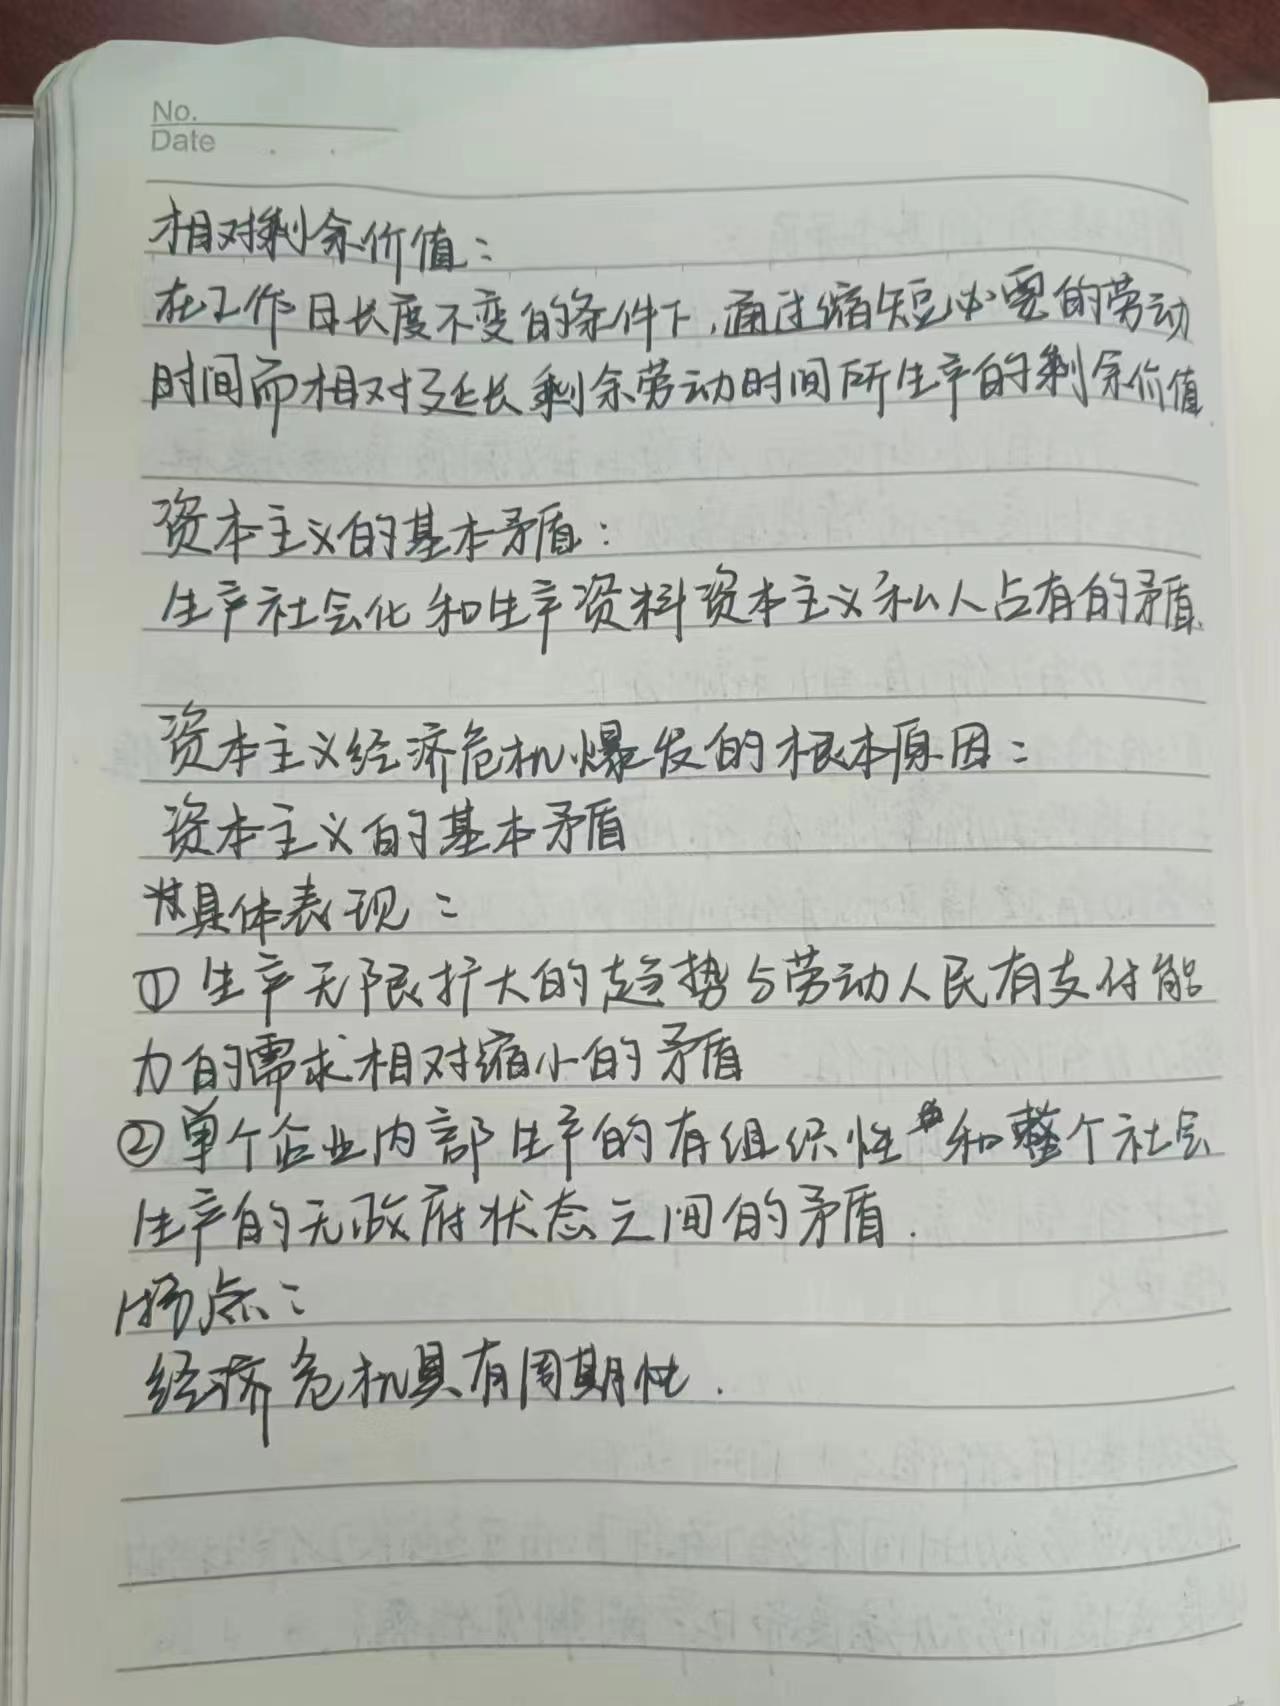 No.
Date
相对剩余价值：
在工作日长度不变的条件下,通过缩短必要的劳动
时间而相对延长剩余劳动时间所生产的剩余价值.
资本主义的基本矛盾：
生产社会化和生产资料资本主义私人占有的矛盾.
资本主义经济危机爆发的根本原因：
资本主义的基本矛盾
具体表现：
①生产无限扩大的趋势与劳动人民有支付能
力的需求相对缩小的矛盾
②单个企业内部生产的有组织性和整个社会
生产的无政府状态之间的矛盾.
特点：
经济危机具有周期性.